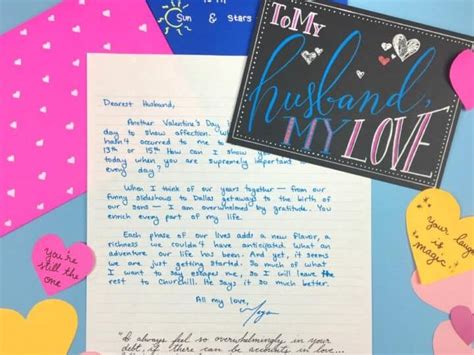 Sun & stars
TO MY
husband,
MY LOVE
Dearest Husband,
Another Valentine's Day
day to show affection. W
hasn't occurred to me to
13th or 15th. How can I show
today when you are supremely important
every day?
When I think of our years together — from our
funny slideshows to Dallas getaways to the birth of
our sons — I am overwhelmed by gratitude. You
enrich every part of my life.
Each phase of our lives adds a new flavor, a
richness we couldn't have anticipated. What an
adventure our life has been. And yet, it seems
we are just getting started. So much of what
I want to say escapes me, so I will leave the
rest to Churchill. He says it so much better.
All my love,
Megan
"I always feel so overwhelmingly in your
debt, if there can be accounts in love...
You're
still the
one
Your laugh
is
magic